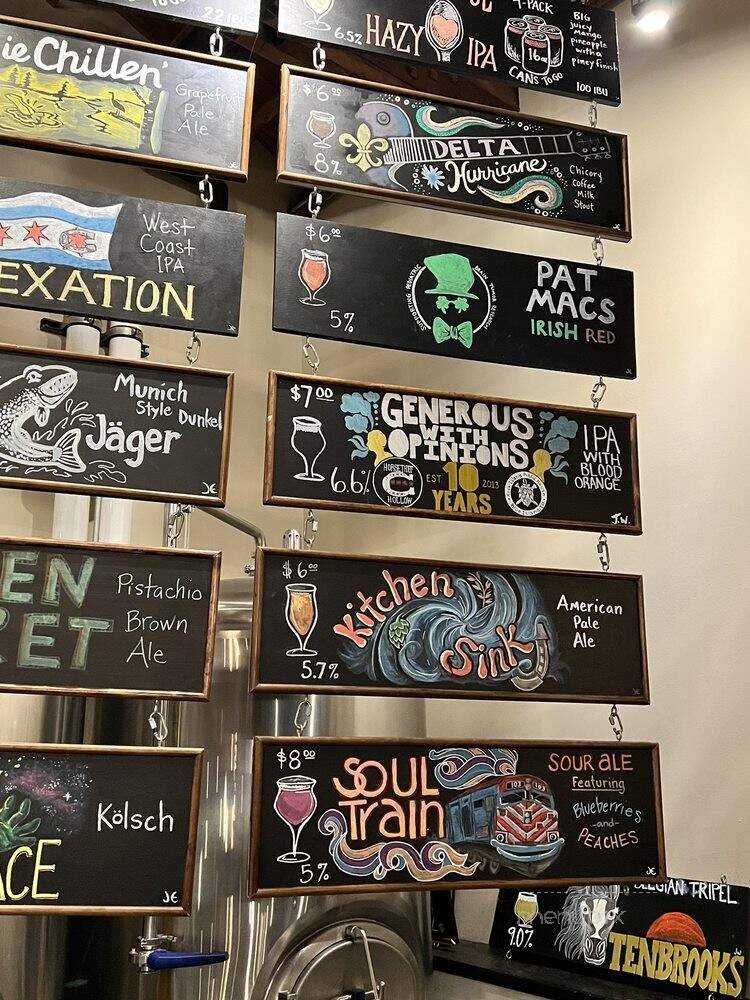 22 IBU
ie Chillen'
Grapefruit
Pale
Ale
JE
West
Coast
IPA
EXATION
JE
Munich
Style Dunkel
Jäger
JE
EN
KET
Pistachio
Brown
Ale
JE
Kölsch
ACE
JE
6.5%
HAZY IPA
4-PACK
16oz
CANS TO GO
BIG
juicy
mango
pineapple
with a
piney finish
100 IBU
$6.00
8%
DELTA
Hurricane
Chicory
Coffee
Milk
Stout
JE
$6.00
5%
SUPPORTING PEDIATRIC BRAIN TUMOR RESEARCH
PAT
MACS
IRISH RED
JE
$7.00
6.6%
GENEROUS
WITH
OPINIONS
HORSETHIEF
HOLLOW
EST 10 2013
YEARS
IPA
WITH
BLOOD
ORANGE
J.W.
$6.00
5.7%
Kitchen
Sink
American
Pale
Ale
JE
$8.00
5%
SOUL
Train
103 193
SOUR ALE
Featuring
Blueberries
-and-
PEACHES
JE
9.0%
BELGIAN TRIPEL
TENBROOKS